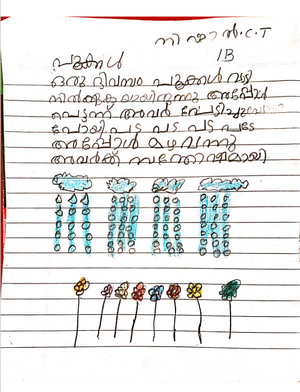 നിഷാൻ.C.T
1B
പൂക്കൾ
ഒരു ദിവസം പൂക്കൾ വാടി
നിൽക്കുകയായിരുന്നു അപ്പോൾ
പെട്ടന്ന് അവർ പേടിച്ചു
പോയി പട പട പട പടേ
അപ്പോൾ മഴ വന്നു
അവർക്ക് സന്തോഷമായി